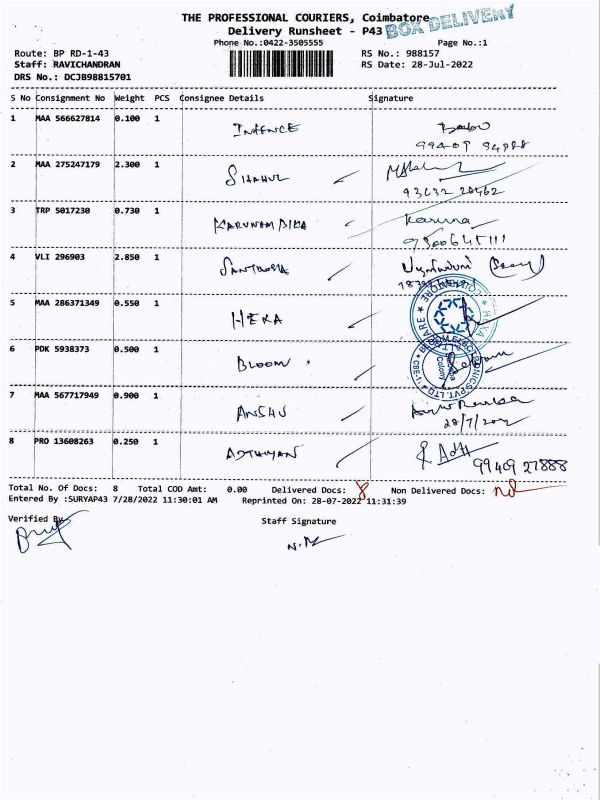 THE PROFESSIONAL COURIERS, Coimbatore
BOX DELIVERY
Delivery Runsheet - P43
Phone No.:0422-3505555 Page No.:1
Route: BP RD-1-43 RS No.: 988157
Staff: RAVICHANDRAN RS Date: 28-Jul-2022
DRS No.: DCJB98815701
S No Consignment No Weight PCS Consignee Details Signature
1 MAA 566627814 0.100 1 INTENCE
2 MAA 275247179 2.300 1 SHAHUL
93632 20462
3 TRP 5017230 0.730 1 KARUNAMBIKA Karuna
4 VLI 296903 2.850 1
5 MAA 286371349 0.550 1 HEKA
6 PDK 5938373 0.500 1 BLOOM
7 MAA 567717949 0.900 1 ANSHU
28/7/2022
8 PRO 13608263 0.250 1
99409 27888
Total No. Of Docs: 8 Total COD Amt: 0.00 Delivered Docs: 8 Non Delivered Docs: nil
Entered By :SURYAP43 7/28/2022 11:30:01 AM Reprinted On: 28-07-2022 11:31:39
Verified By
Staff Signature